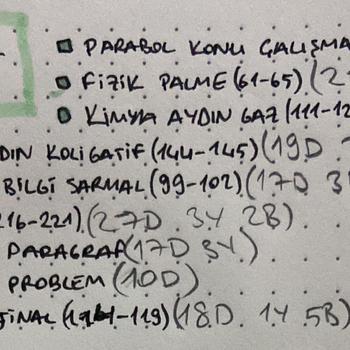 PARABOL KONU ÇALIŞMA
FİZİK PALME (61-65) (2
KİMYA AYDIN GAZ (111-12
DIN KOLİGATİF (144-145) (19D
BİLGİ SARMAL (99-102) (17D 3
216-221) (27D 3Y 2B)
PARAGRAF (17D 3Y)
PROBLEM (10D)
JİNAL (-119) (18D 1Y 5B)